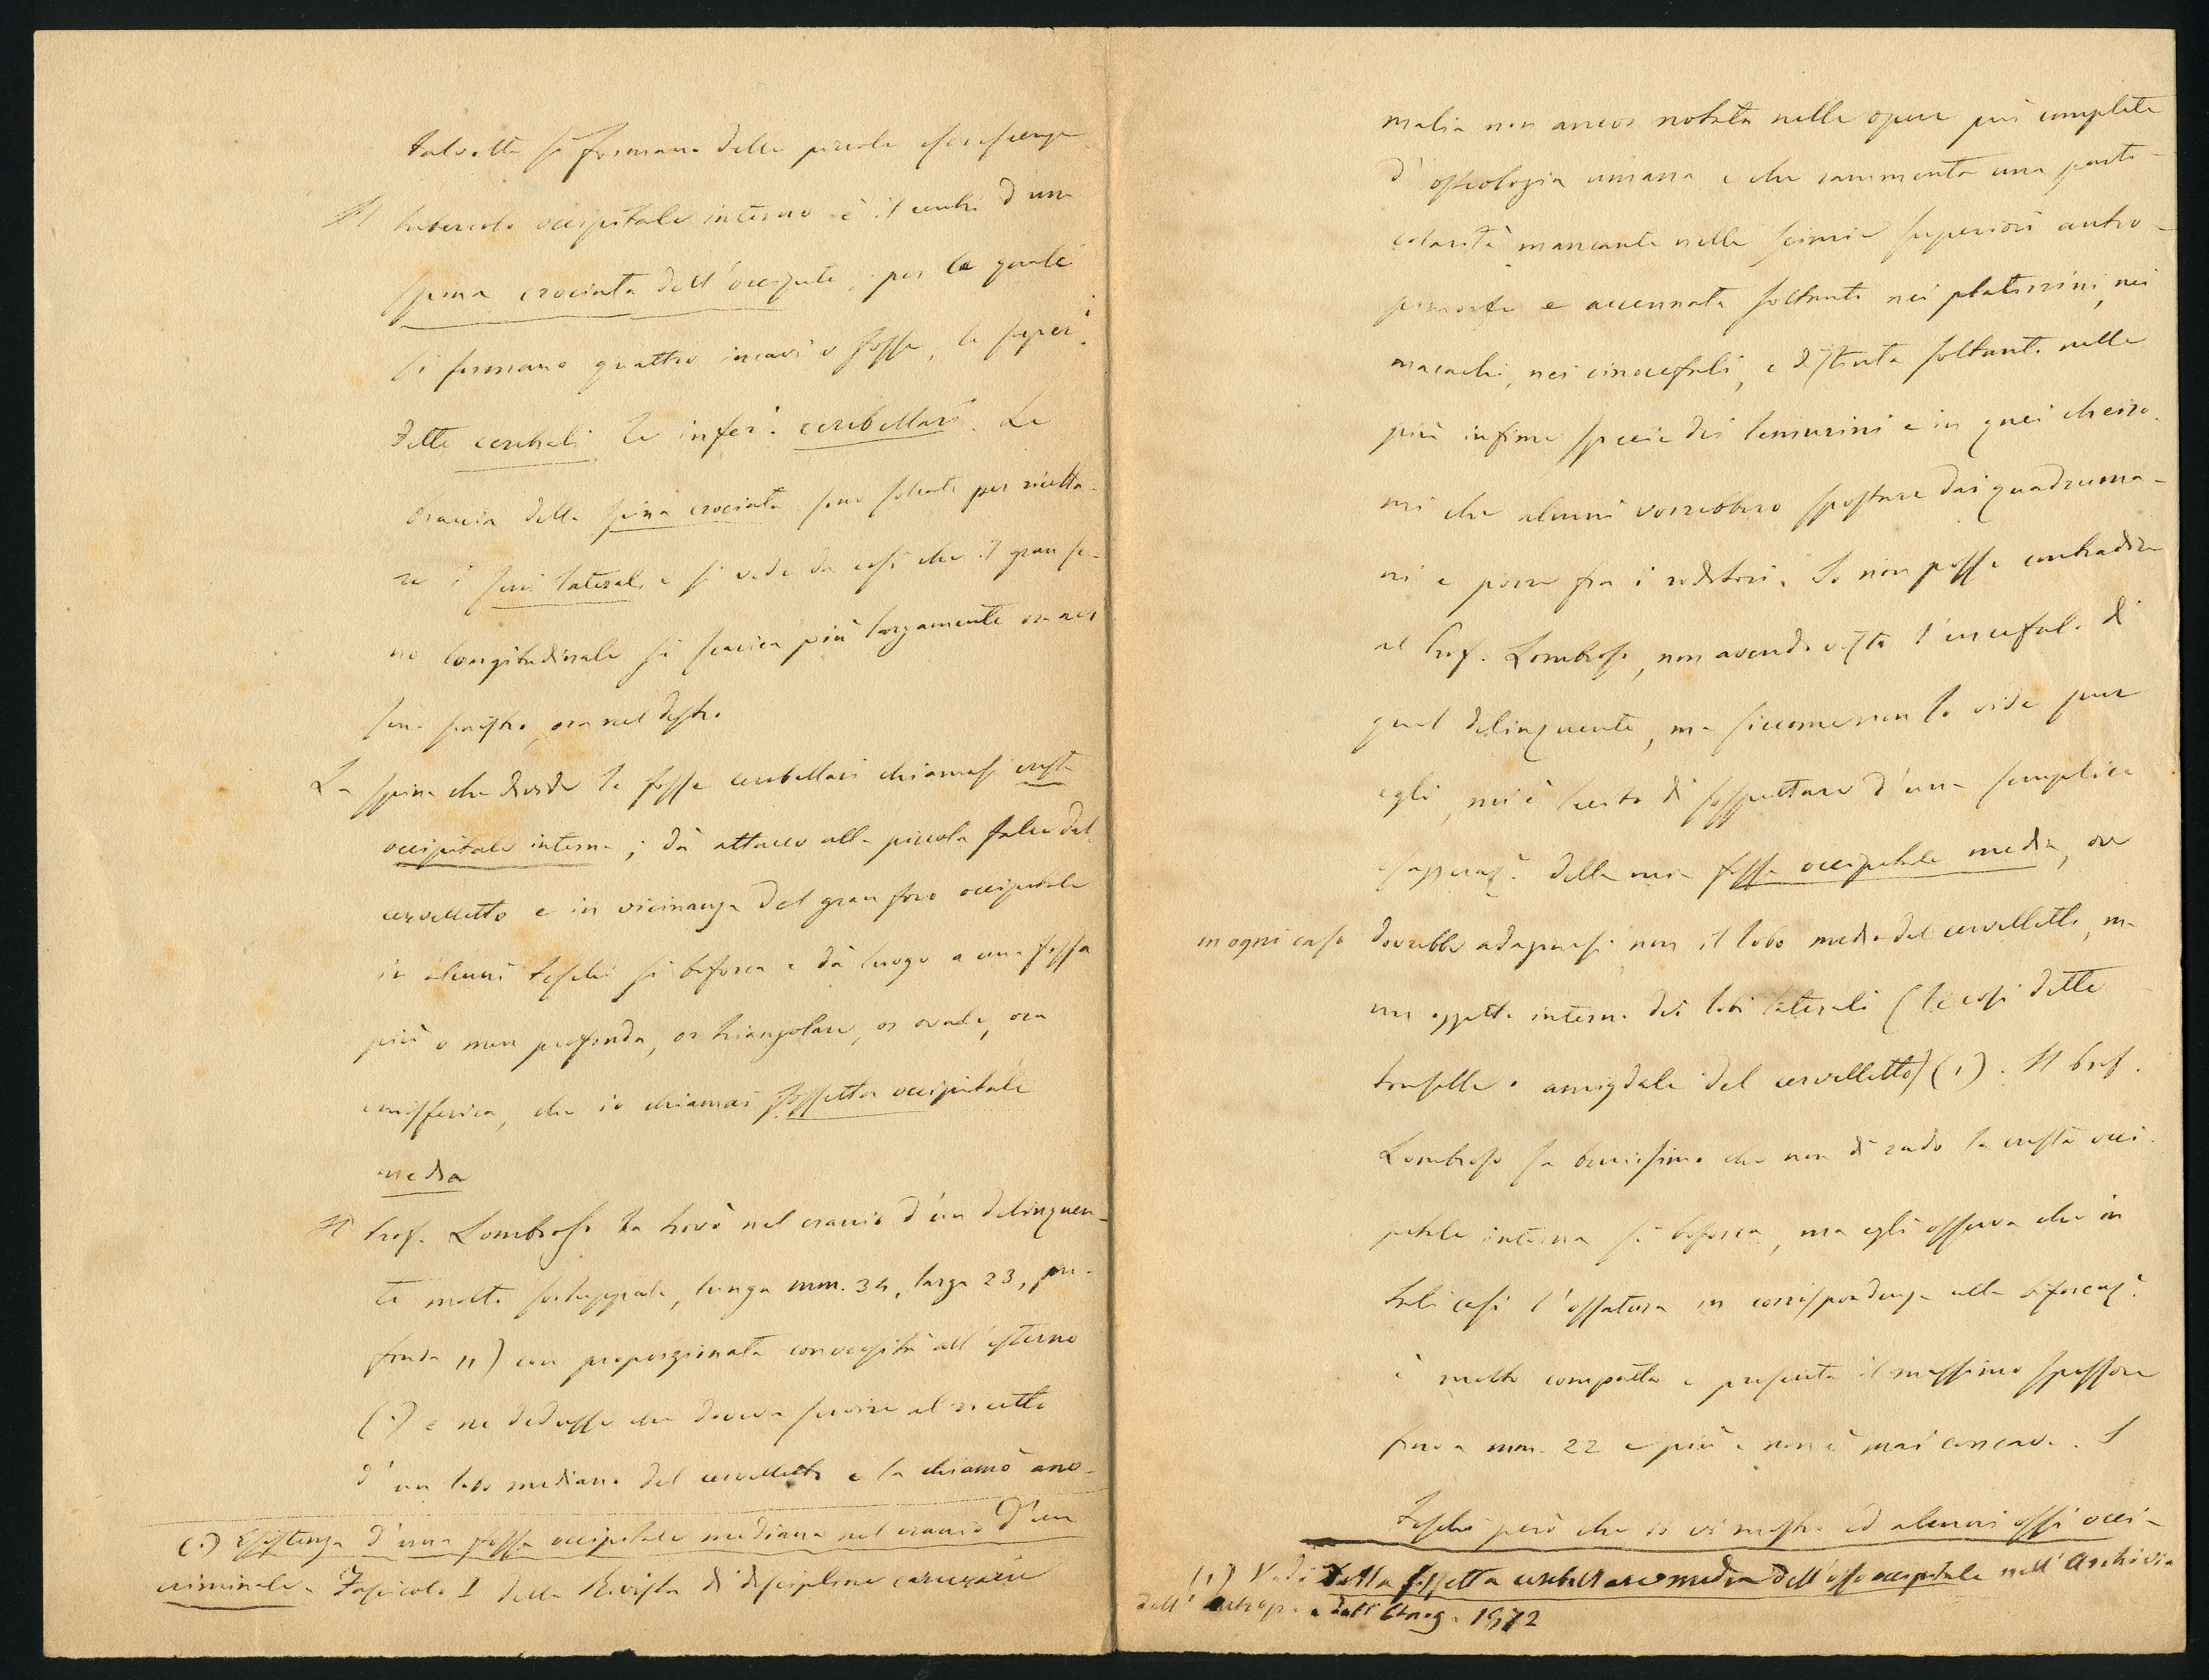 talvolta si formano delle piccole esosfenze
Il tubercolo occipitale interno è il centro d'una
spina crociata dell'occipite, per la quale
si formano quattro incavi o fosse, le superi.
dette cerebrali le inferi. cerebellari. Le
braccia della spina crociata sono solcate per ricetta-
re i seni laterali e si vede da essi che il gran se-
no longitudinale si scarica più largamente ora nel
seno sinistro, ora nel destro.
La spina che divide le fosse cerebellari chiamasi cresta
occipitale interna; dà attacco alla piccola falce del
cervelletto e in vicinanza del gran foro occipitale
in alcuni teschi si biforca e dà luogo a una fossa
più o men profonda, or triangolare, or ovale, ora
emisferica, che io chiamai fossetta occipitale
media
Il Prof. Lombroso la trovò nel cranio d'un delinquen-
te molto sviluppata, lunga mm. 34, larga 23, pro-
fonda 11) con proporzionata convessità all'esterno
(1) e ne dedusse che doveva servire al ricetto
d'un lobo mediano del cervelletto e la chiamò ano-
(1) Esistenza d'una fossa occipitale mediana nel cranio d'un
criminale. Fascicolo I della Rivista di discipline carcerarie
malia non ancor notata nelle opere più complete
d'osteologia umana e che rammenta una parti-
colarità mancante nelle scimie superiori antro-
pomorfe e accennata soltanto nei platirrini, nei
macachi, nei cinocefali, e distinta soltanto nelle
più infime specie dei lemurini e in quei cheiro-
mi che alcuni vorrebbero spostare dai quadruma-
ni e porre fra i roditori. Io non posso contradire
al Prof. Lombroso, non avendo visto l'encefalo di
quel delinquente, ma siccome non lo vide pure
egli, mi è lecito di sospettare d'una semplice
esagerazi. della mia fossa occipitale media, ove
in ogni caso dovrebbe adagiarsi non il lobo medio del cervelletto, ma
un oggetto interno dei lobi laterali (le così dette
tonsille o amigdale del cervelletto) (1). Il Prof.
Lombroso sa benissimo che non di rado la cresta occi-
pitale interna si biforca, ma egli osserva che in
tali casi l'ossatura in corrispondenza alla biforcaz.
è molto compatta e presenta il massimo spessore
fino a mm. 22 e più e non è mai concava. I
teschi però che io vi mostro ed alcuni ossi occi-
(1) Vedi Della fossetta cerebellare media dell'osso occipitale nell'Archivio
dell'Antrop. e dell'Etnog. 1872